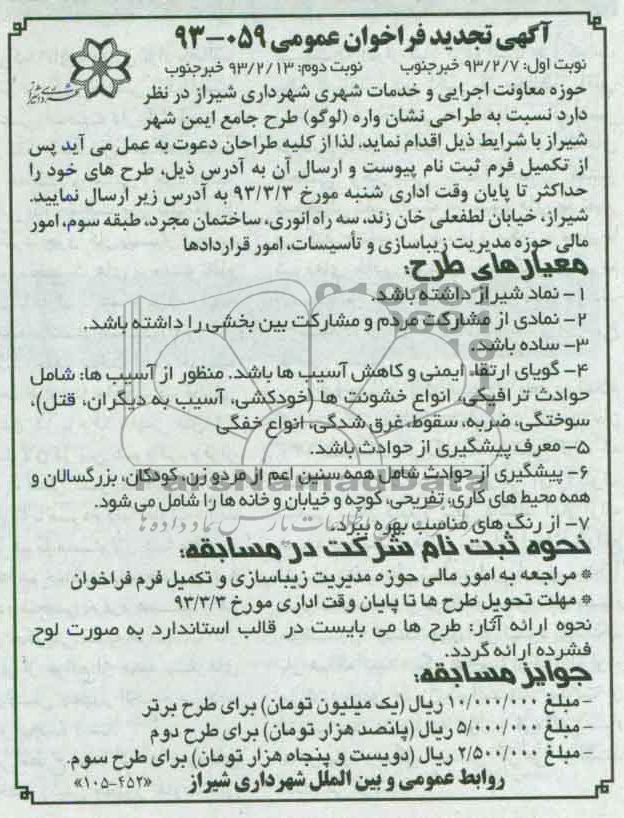 آگهی تجدید فراخوان عمومی ۰۵۹-۹۳
نوبت اول: ۹۳/۲/۷ خبرجنوب نوبت دوم: ۹۳/۲/۱۳ خبرجنوب
حوزه معاونت اجرایی و خدمات شهری شهرداری شیراز در نظر
دارد نسبت به طراحی نشان واره (لوگو) طرح جامع ایمن شهر
شیراز با شرایط ذیل اقدام نماید. لذا از کلیه طراحان دعوت به عمل می آید پس
از تکمیل فرم ثبت نام پیوست و ارسال آن به آدرس ذیل، طرح های خود را
حداکثر تا پایان وقت اداری شنبه مورخ ۹۳/۳/۳ به آدرس زیر ارسال نمایید.
شیراز، خیابان لطفعلی خان زند، سه راه انوری، ساختمان مجرد، طبقه سوم، امور
مالی حوزه مدیریت زیباسازی و تأسیسات، امور قراردادها
معیارهای طرح:
۱- نماد شیراز داشته باشد.
۲- نمادی از مشارکت مردم و مشارکت بین بخشی را داشته باشد.
۳- ساده باشد.
۴- گویای ارتقاء ایمنی و کاهش آسیب ها باشد. منظور از آسیب ها: شامل
حوادث ترافیکی، انواع خشونت ها (خودکشی، آسیب به دیگران، قتل)،
سوختگی، ضربه، سقوط، غرق شدگی، انواع خفگی
۵- معرف پیشگیری از حوادث باشد.
۶- پیشگیری از حوادث شامل همه سنین اعم از مرد و زن، کودکان، بزرگسالان و
همه محیط های کاری، تفریحی، کوچه و خیابان و خانه ها را شامل می شود.
۷- از رنگ های مناسب بهره ببرد.
نحوه ثبت نام شرکت در مسابقه:
* مراجعه به امور مالی حوزه مدیریت زیباسازی و تکمیل فرم فراخوان
* مهلت تحویل طرح ها تا پایان وقت اداری مورخ ۹۳/۳/۳
نحوه ارائه آثار: طرح ها می بایست در قالب استاندارد به صورت لوح
فشرده ارائه گردد.
جوایز مسابقه:
- مبلغ ۱۰/۰۰۰/۰۰۰ ریال (یک میلیون تومان) برای طرح برتر
- مبلغ ۵/۰۰۰/۰۰۰ ریال (پانصد هزار تومان) برای طرح دوم
- مبلغ ۲/۵۰۰/۰۰۰ ریال (دویست و پنجاه هزار تومان) برای طرح سوم.
روابط عمومی و بین الملل شهرداری شیراز «۴۵۲-۱۰۵»